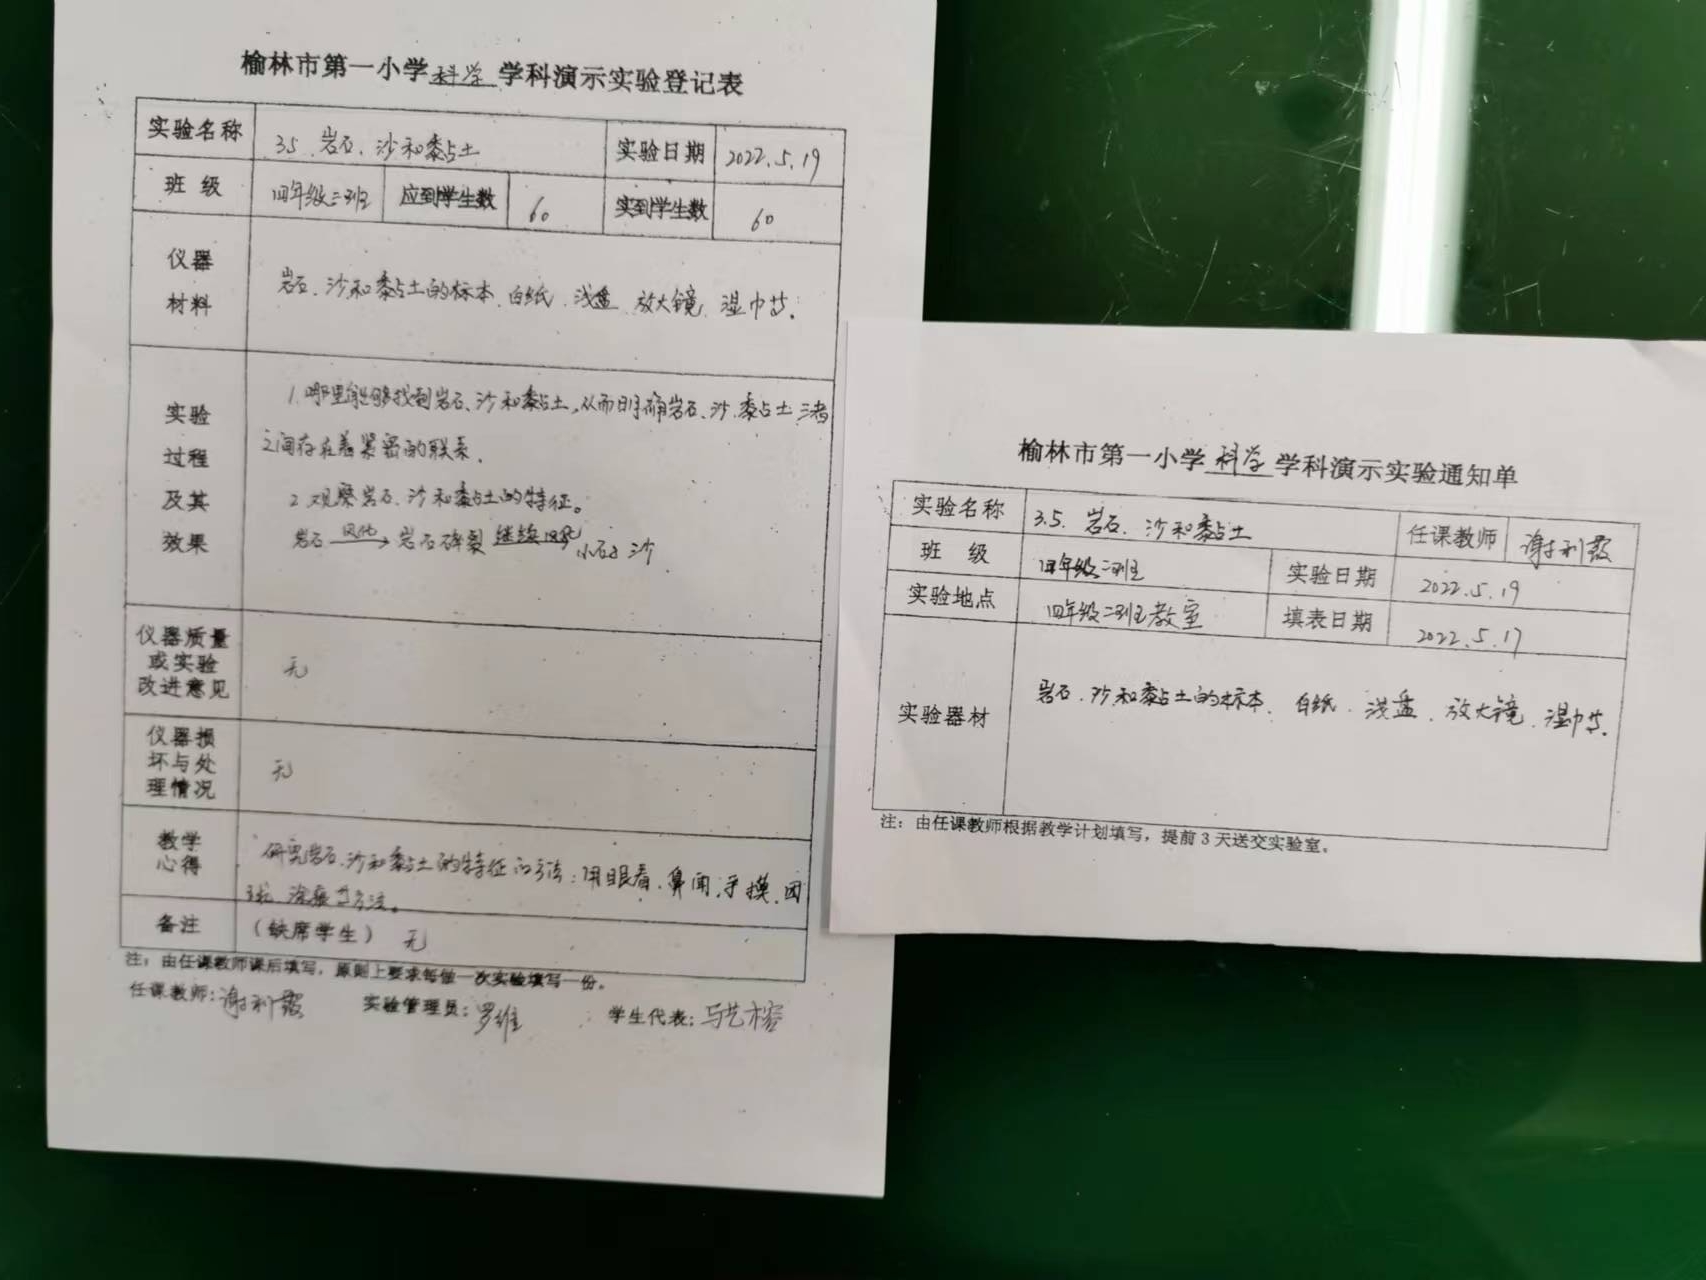 榆林市第一小学科学学科演示实验登记表
实验名称 3.5 岩石、沙和黏土 实验日期 2022.5.19
班级 四年级二班 应到学生数 60 实到学生数 60
仪器材料 岩石、沙和黏土的标本、白纸、浅盘、放大镜、湿巾等.
实验过程及其效果
1.哪里能够找到岩石、沙和黏土,从而明确岩石、沙、黏土三者
之间存在着紧密的联系.
2.观察岩石、沙和黏土的特征。
岩石 风化→ 岩石碎裂 继续风化 小石 沙
仪器质量或实验改进意见 无
仪器损坏与处理情况 无
教学心得 研究岩石、沙和黏土的特征的方法:用眼看、鼻闻、手摸、团
等方法。
备注 (缺席学生) 无
注:由任课教师课后填写,原则上要求每做一次实验填写一份。
任课教师:谢利霞 实验管理员:罗维 学生代表:马艺榕
榆林市第一小学科学学科演示实验通知单
实验名称 3.5. 岩石、沙和黏土 任课教师 谢利霞
班级 四年级二班 实验日期 2022.5.19
实验地点 四年级二班教室 填表日期 2022.5.17
实验器材 岩石、沙和黏土的标本、白纸、浅盘、放大镜、湿巾等.
注:由任课教师根据教学计划填写,提前3天送交实验室。